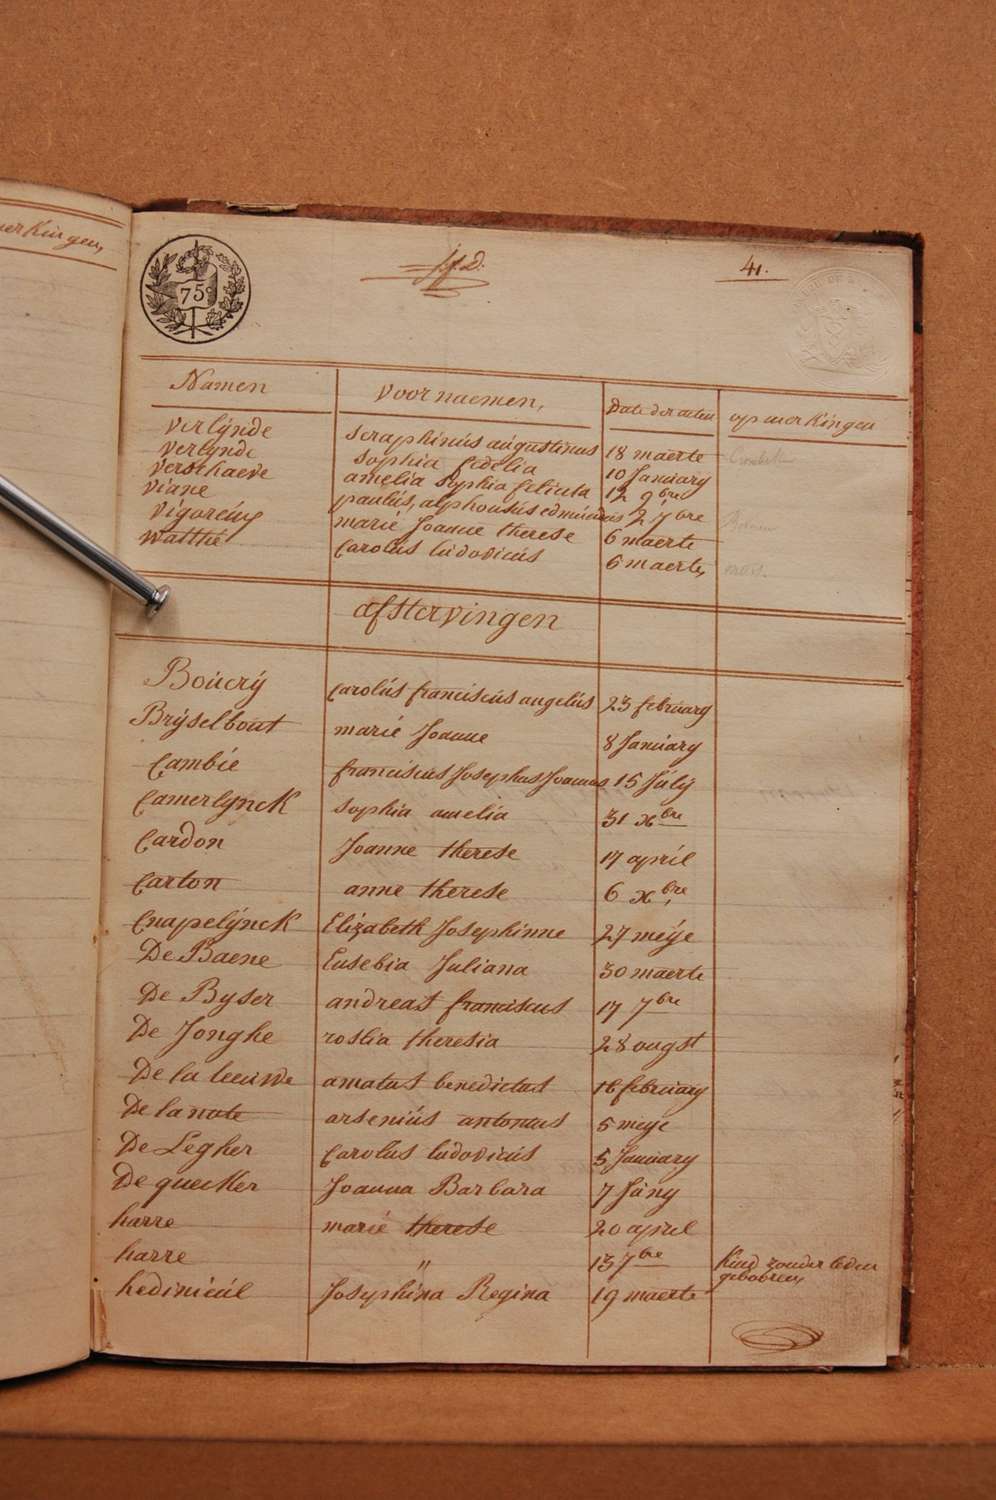 75c
41.
Namen voornaemen, Date der acten opmerkingen
verlÿnde seraphinús aúgustinus 18 maerte
verlÿnde sophia fidelia 10 January
verschaeve amelia sophia felicita 12 9bre
viane paulús, alphonsús edmúndus 27 bre
vigoreúx marie Joanne therese 6 maerte
Watthé Carolus ludovicús 6 maerte,
afstervingen
Boúcrÿ Carolús franciscús angelús 23 february
Brÿselbout marié Joanne 8 January
Cambié franciscus Josephus Joannes 15 Júlÿ
Camerlÿnck sophia amelia 31 xbre
Cardon Joanne therese 17 april
Carton anne therese 6 xbre
Cnapelÿnck Elizabeth Josephinne 27 meÿe
De Baene Eusebia Juliana 30 maerte
De Byser andreas franciscus 17 7bre
De Jonghe roslia theresia 28 ougst
De la leeuwe amatus benedictus 16 february
De la note arseniús antonius 5 meÿe
De Legher Carolus ludovicús 5 January
De quecker Joanna Barbara 7 Júny
harre marié therese 20 april
harre " 13 7bre Kind zonder leden
gebooren,
hedinieúl Josephina Regina 19 maerte